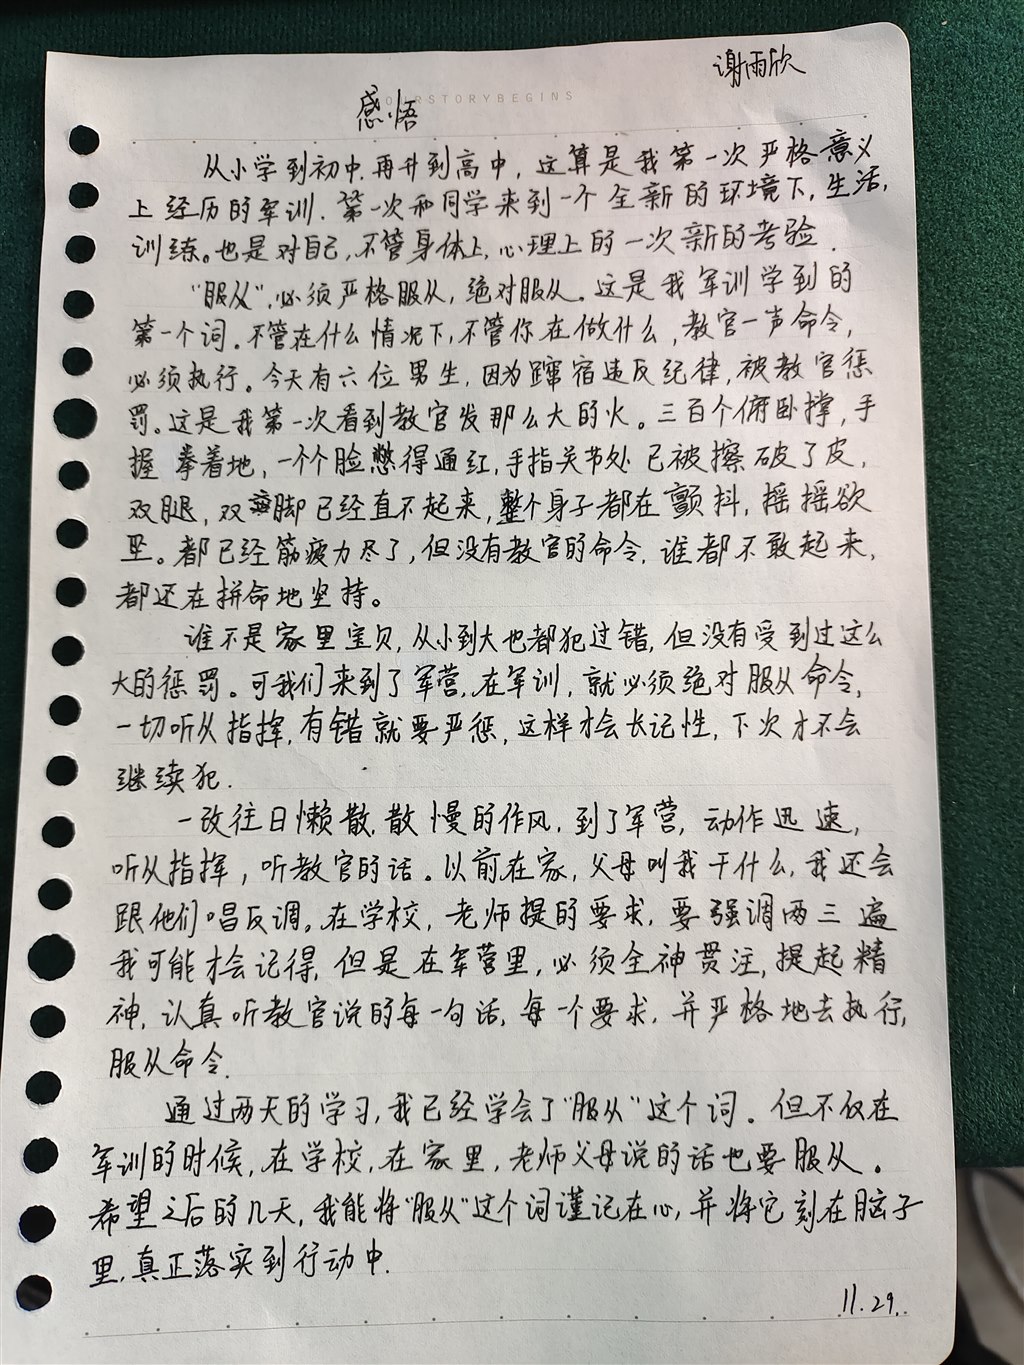 谢雨欣
STORYBEGINS
感悟
从小学到初中,再升到高中,这算是我第一次严格意义
上经历的军训.第一次和同学来到一个全新的环境下,生活,
训练。也是对自己,不管身体上,心理上的一次新的考验.
“服从”,必须严格服从,绝对服从.这是我军训学到的
第一个词.不管在什么情况下,不管你在做什么,教官一声命令,
必须执行。今天有六位男生,因为蹿宿违反纪律,被教官惩
罚。这是我第一次看到教官发那么大的火。三百个俯卧撑,手
握拳着地,一个个脸憋得通红,手指关节处已被擦破了皮,
双腿,双脚已经直不起来,整个身子都在颤抖,摇摇欲
坠。都已经筋疲力尽了,但没有教官的命令,谁都不敢起来,
都还在拼命地坚持。
谁不是家里宝贝,从小到大也都犯过错,但没有受到过这么
大的惩罚。可我们来到了军营,在军训,就必须绝对服从命令,
一切听从指挥,有错就要严惩,这样才会长记性,下次才不会
继续犯.
一改往日懒散,散慢的作风,到了军营,动作迅速,
听从指挥,听教官的话。以前在家,父母叫我干什么,我还会
跟他们唱反调。在学校,老师提的要求,要强调两三遍
我可能才会记得,但是在军营里,必须全神贯注,提起精
神,认真听教官说的每一句话,每一个要求,并严格地去执行,
服从命令.
通过两天的学习,我已经学会了“服从”这个词.但不仅在
军训的时候,在学校,在家里,老师父母说的话也要服从。
希望之后的几天,我能将“服从”这个词谨记在心,并将它刻在脑子
里,真正落实到行动中.
11.29.